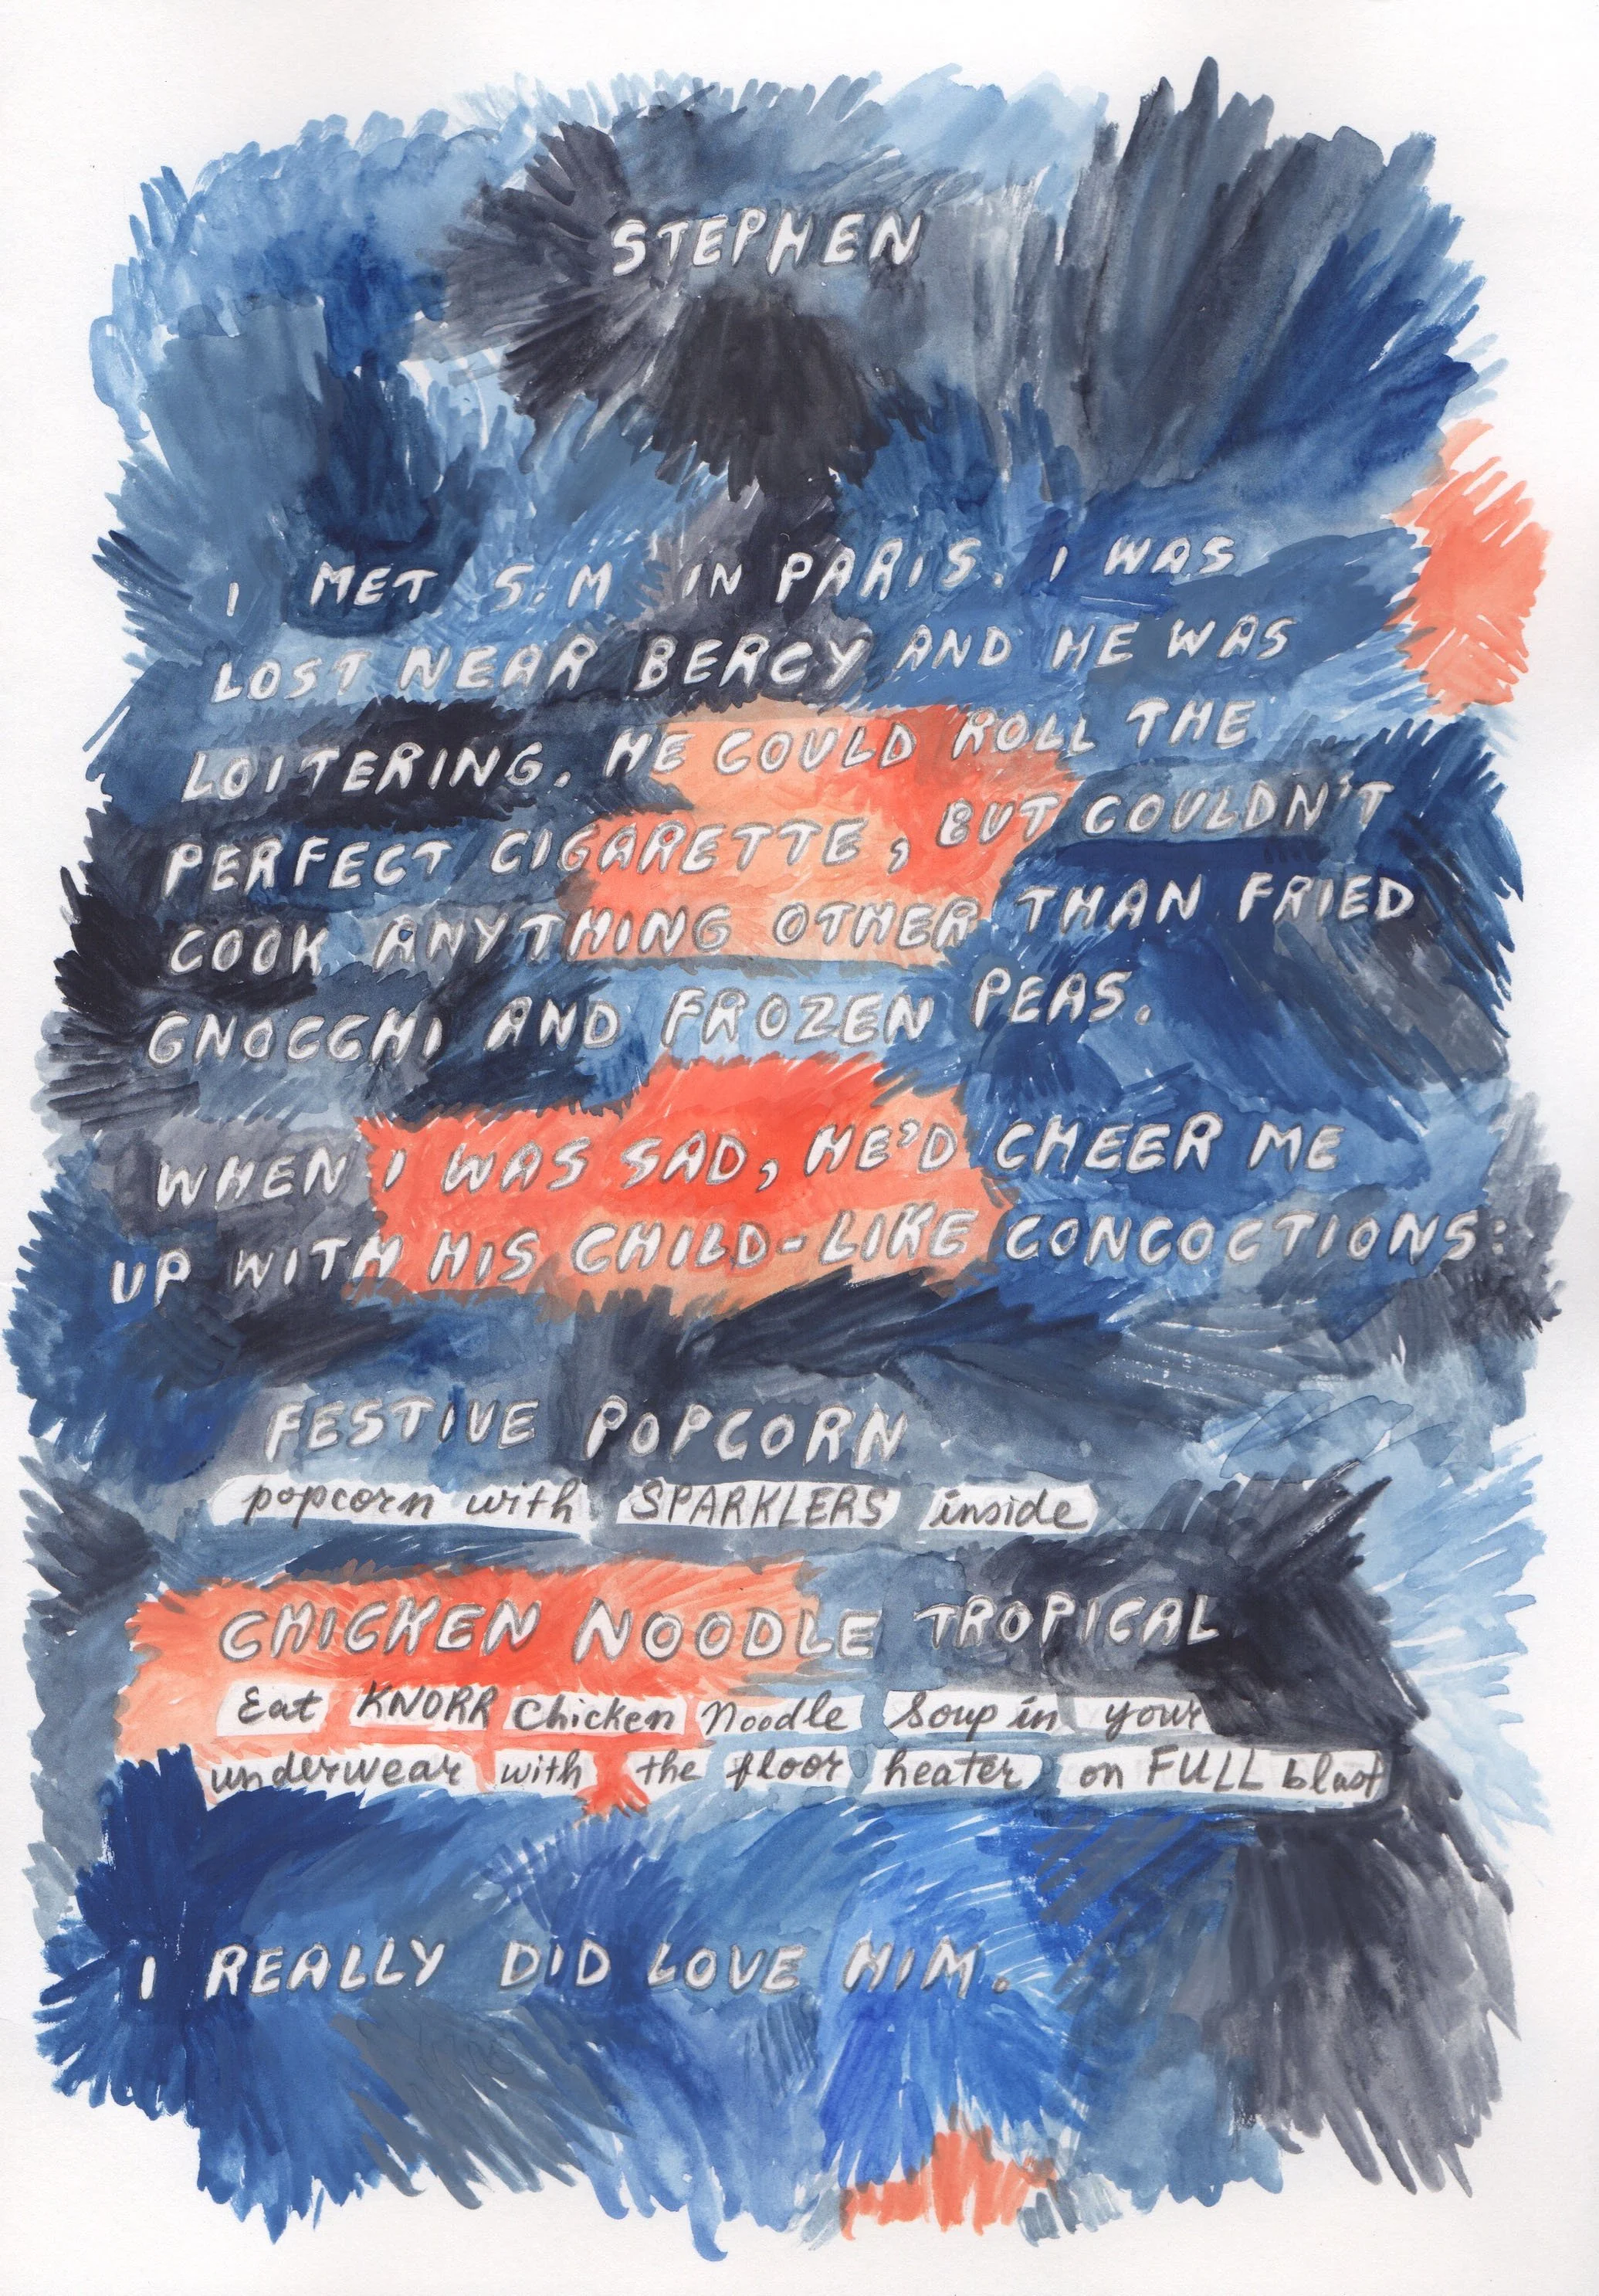 STEPHEN
I MET S.M IN PARIS. I WAS
LOST NEAR BERCY AND HE WAS
LOITERING. HE COULD ROLL THE
PERFECT CIGARETTE, BUT COULDN'T
COOK ANYTHING OTHER THAN FRIED
GNOCCHI AND FROZEN PEAS.
WHEN I WAS SAD, HE'D CHEER ME
UP WITH HIS CHILD-LIKE CONCOCTIONS:
FESTIVE POPCORN
popcorn with SPARKLERS inside
CHICKEN NOODLE TROPICAL
Eat KNORR Chicken Noodle Soup in your
underwear with the floor heater on FULL blast
I REALLY DID LOVE HIM.